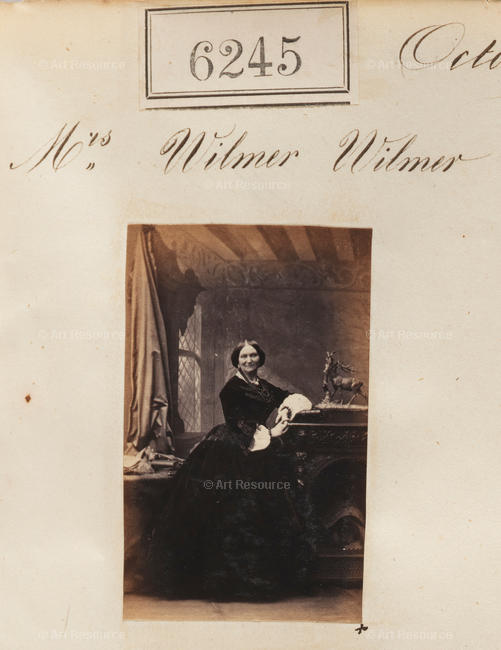 6245
Octo
Mrs Wilmer Wilmer
© Art Resource
© Art Resource
© Art Resource
© Art Resource
© Art Resource
© Art Resource
© Art Resource
© Art Resource
© Art Resource